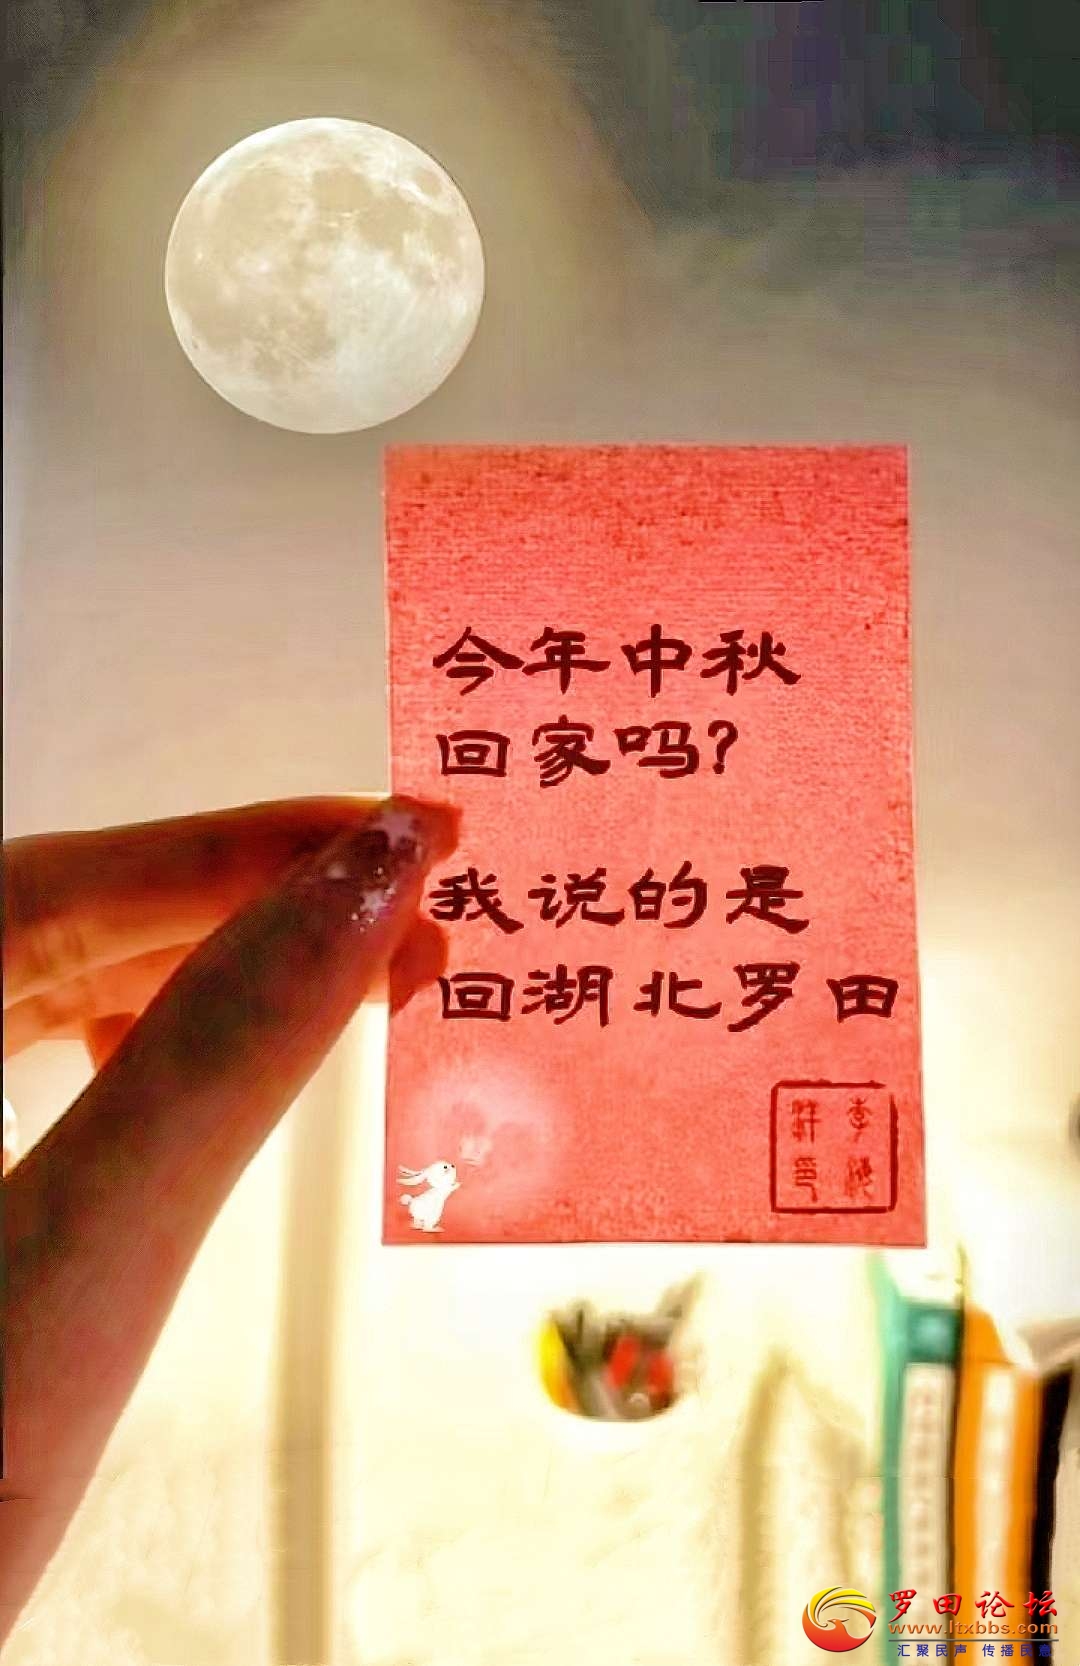 今年中秋
回家吗?
我说的是
回湖北罗田
罗田论坛
www.ltxbbs.com
汇聚民声 传播民意